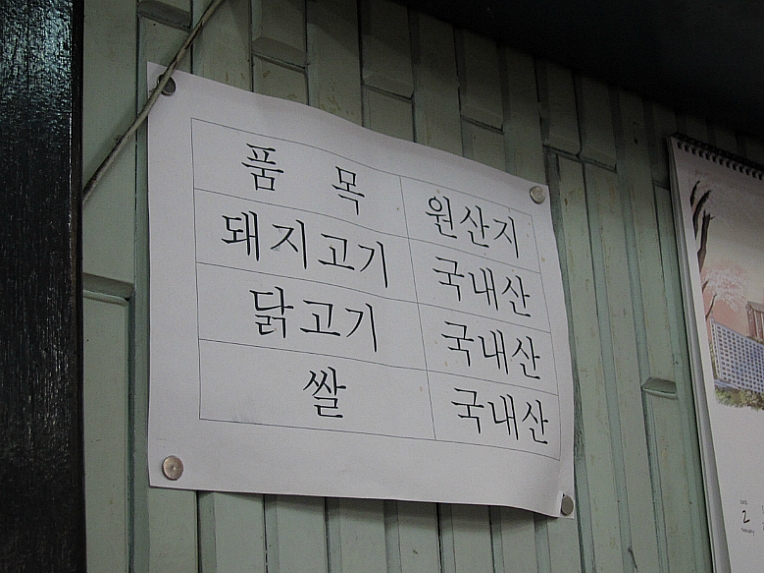 품 목 원산지
돼지고기 국내산
닭고기 국내산
쌀 국내산
2